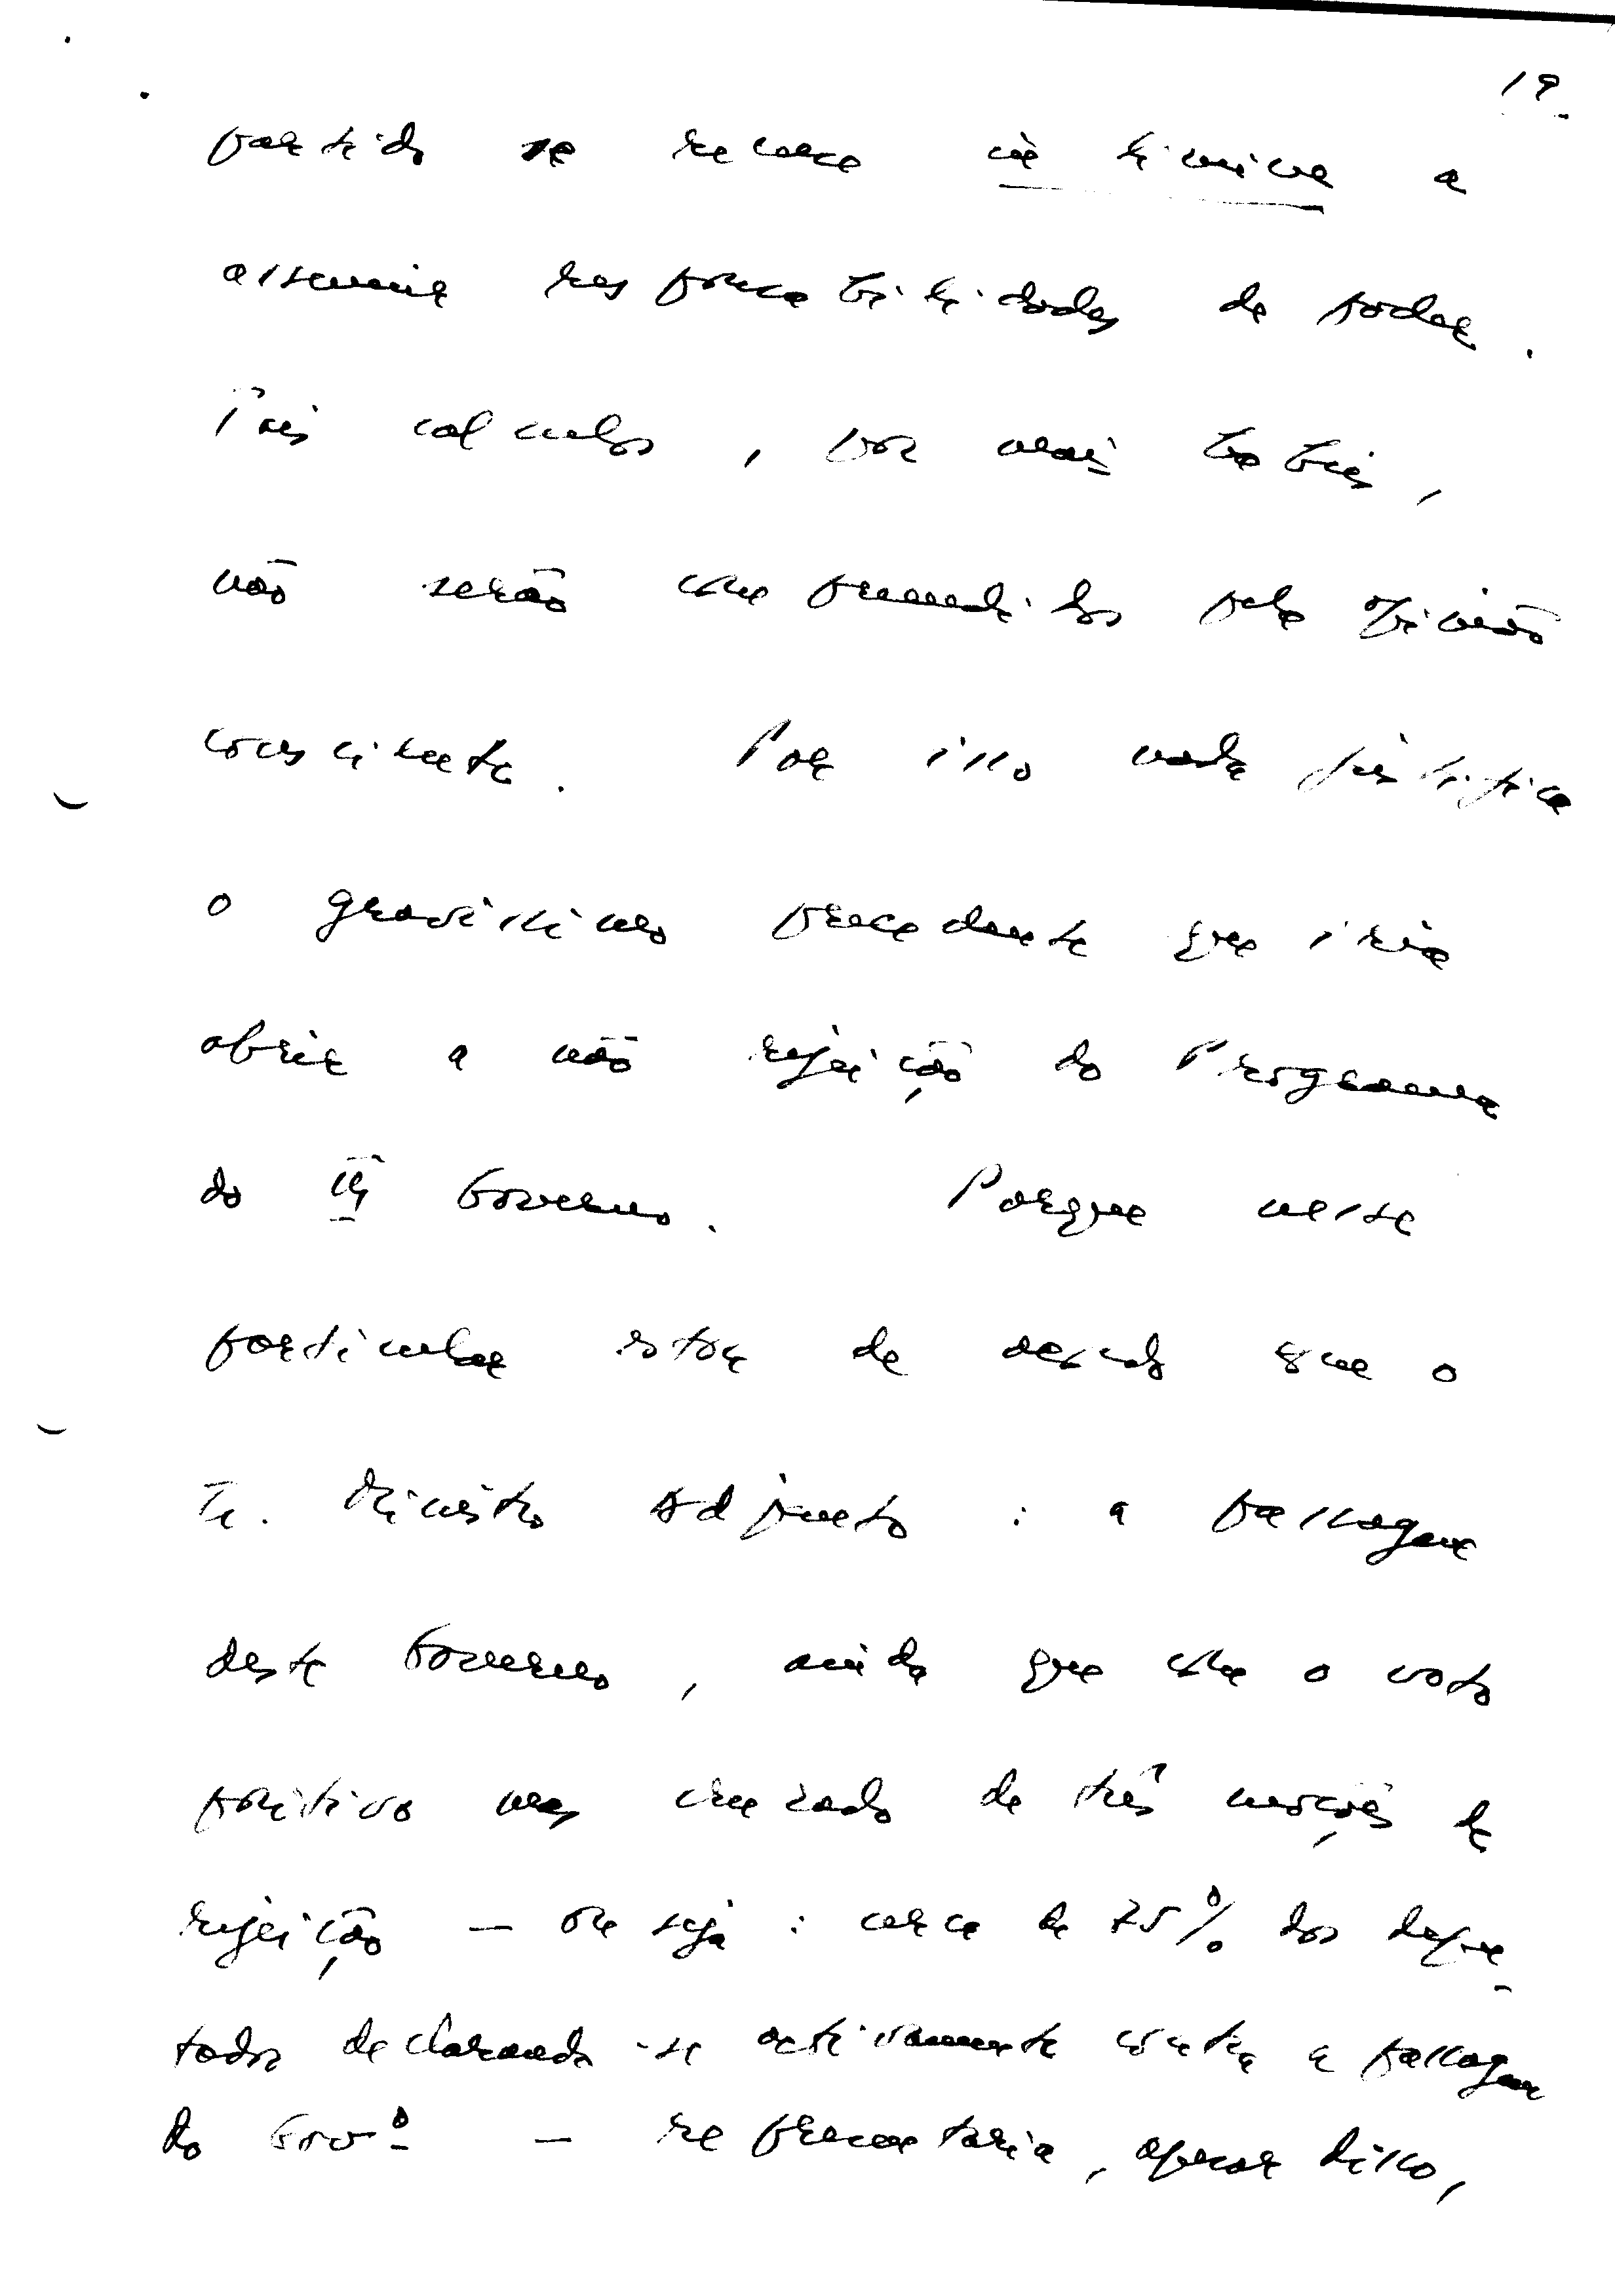 19.
partido se recusa in limine a
assumir responsabilidades de poder.
Tais calculos, por mais habeis,
não serão compreendidos pela opinião
consciente. Por isso nada justifica
o gravíssimo precedente que iria
abrir a não rejeição do Programa
do III Governo. Porque neste
particular estou de acordo que o
Sr. Ministro Adjunto : a passagem
deste Governo, ainda que com o voto
positivo mas cruzado de três moções de
rejeição — ou seja : cerca de 75% dos depu-
tados declarando-se activamente contra a passagem
do Govº — representaria, apesar disso,